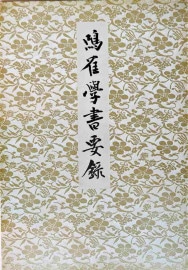 鴻雀學書要錄